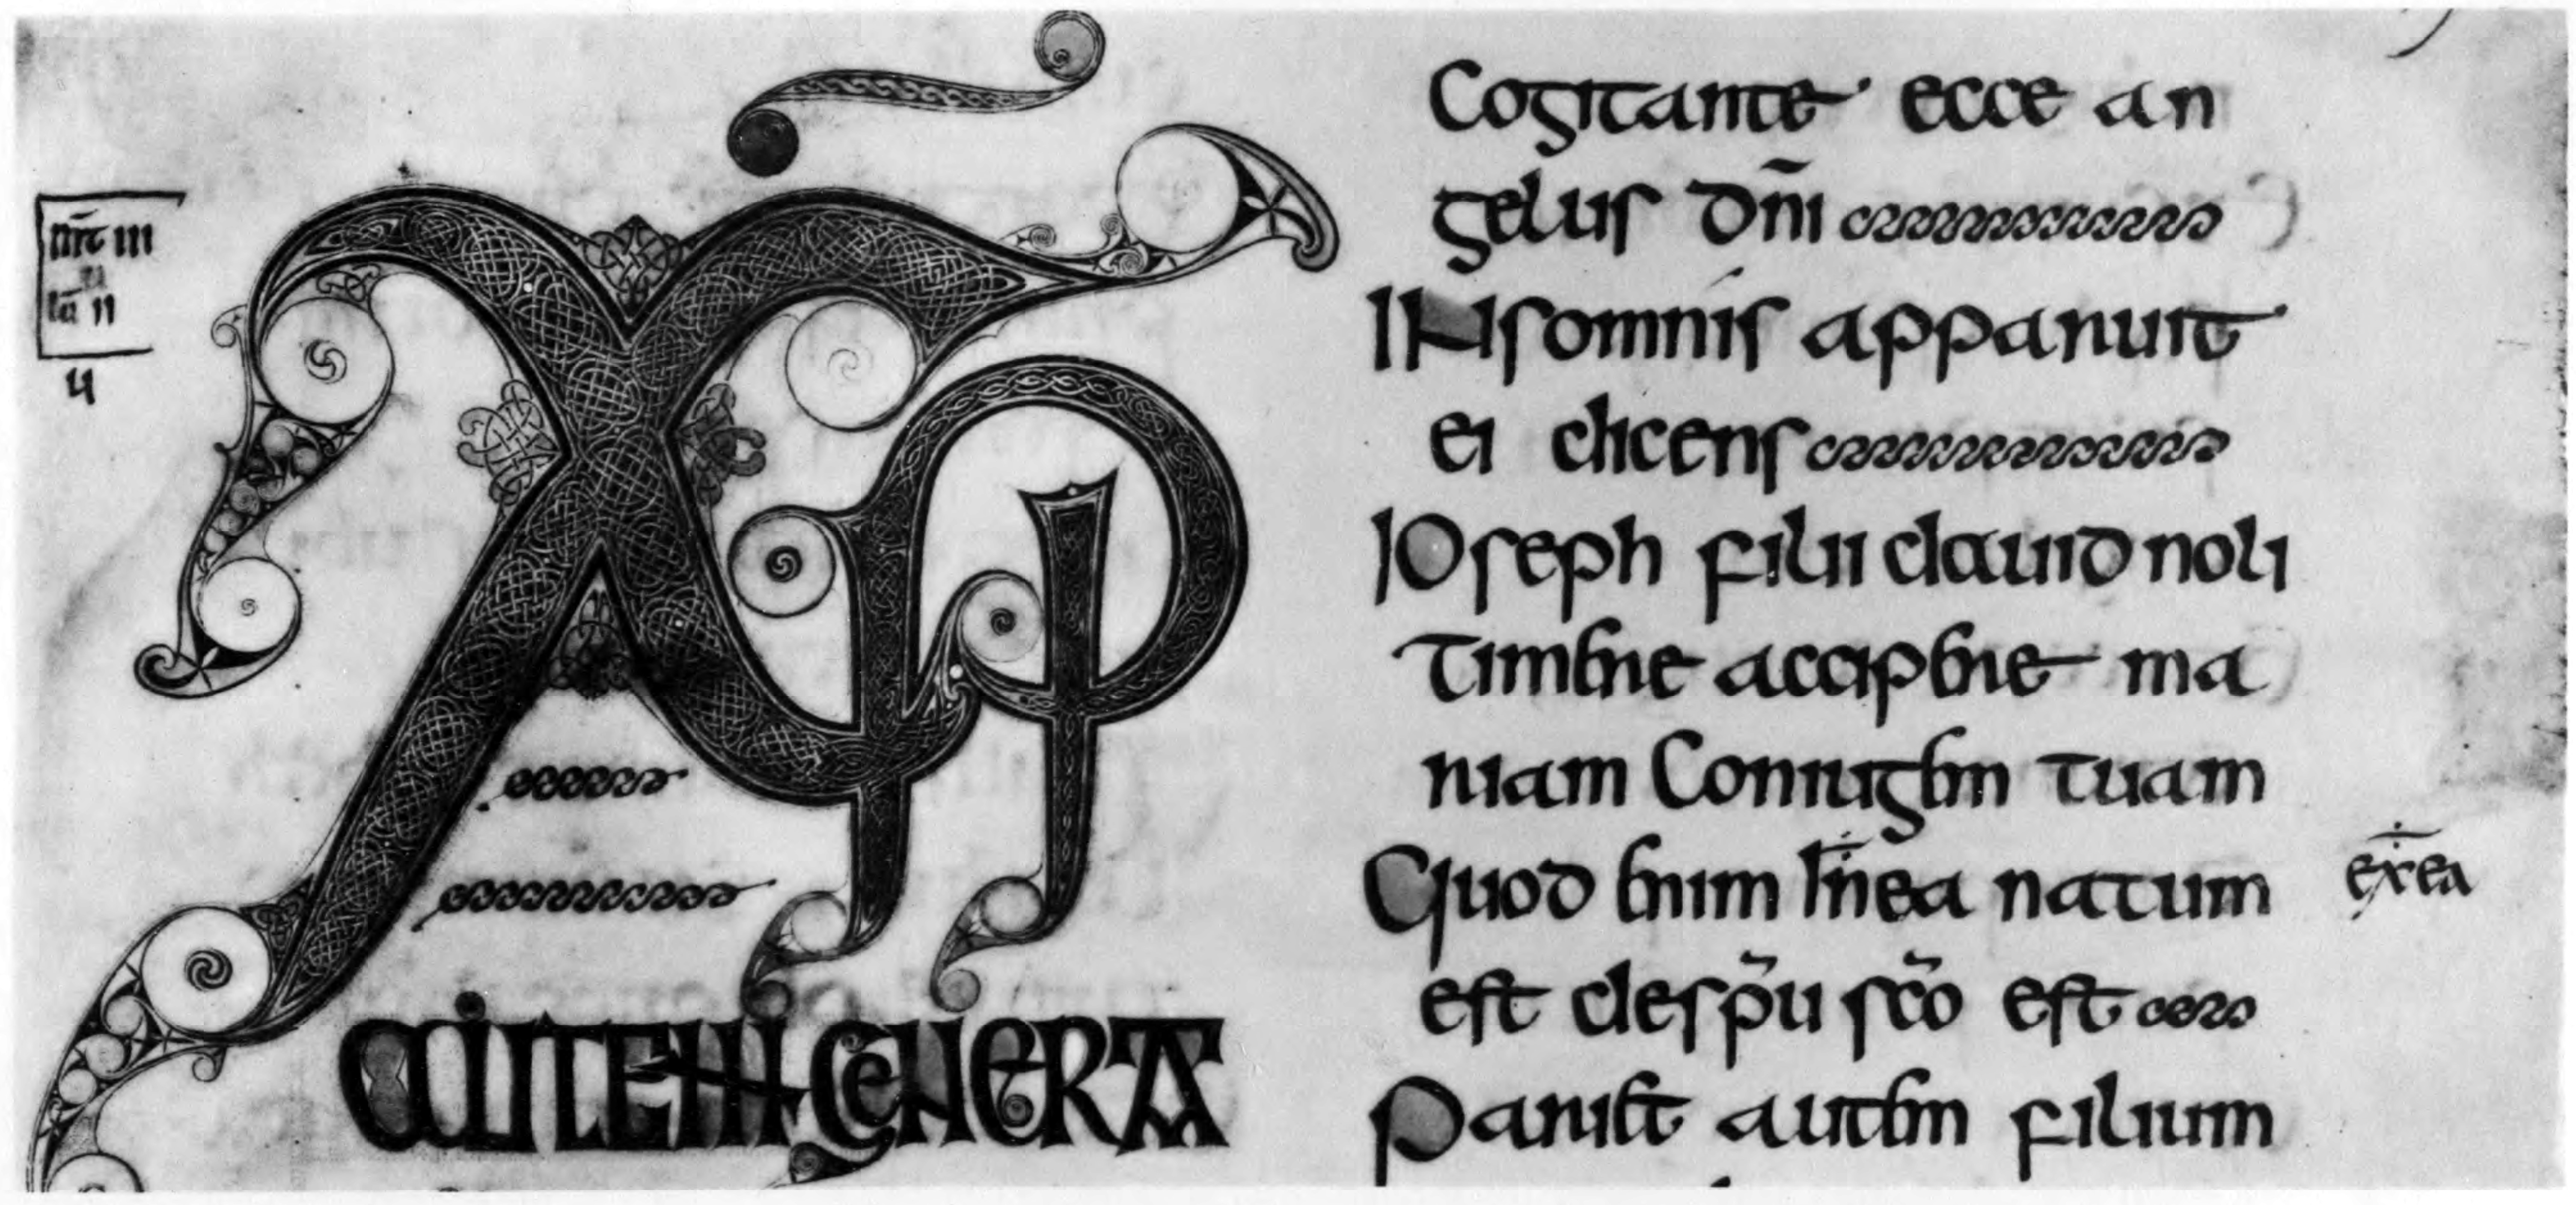 XPI
AUTEM GENERA
Cogitante ecce an
gelus dn̄i
IN somnis apparuit
ei dicens
IOseph filii dauid noli
timere accipere ma
riam Coniugem tuam
Quod enim In ea natum
ex ea
est de sp̄u sc̄o est
Pariet autem filium